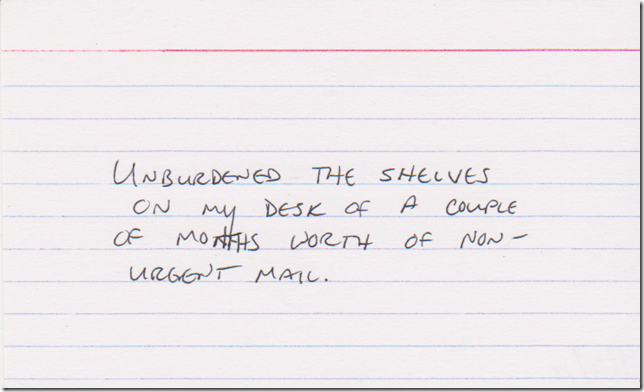 UNBURDENED THE SHELVES
ON MY DESK OF A COUPLE
OF MONTHS WORTH OF NON-
URGENT MAIL.